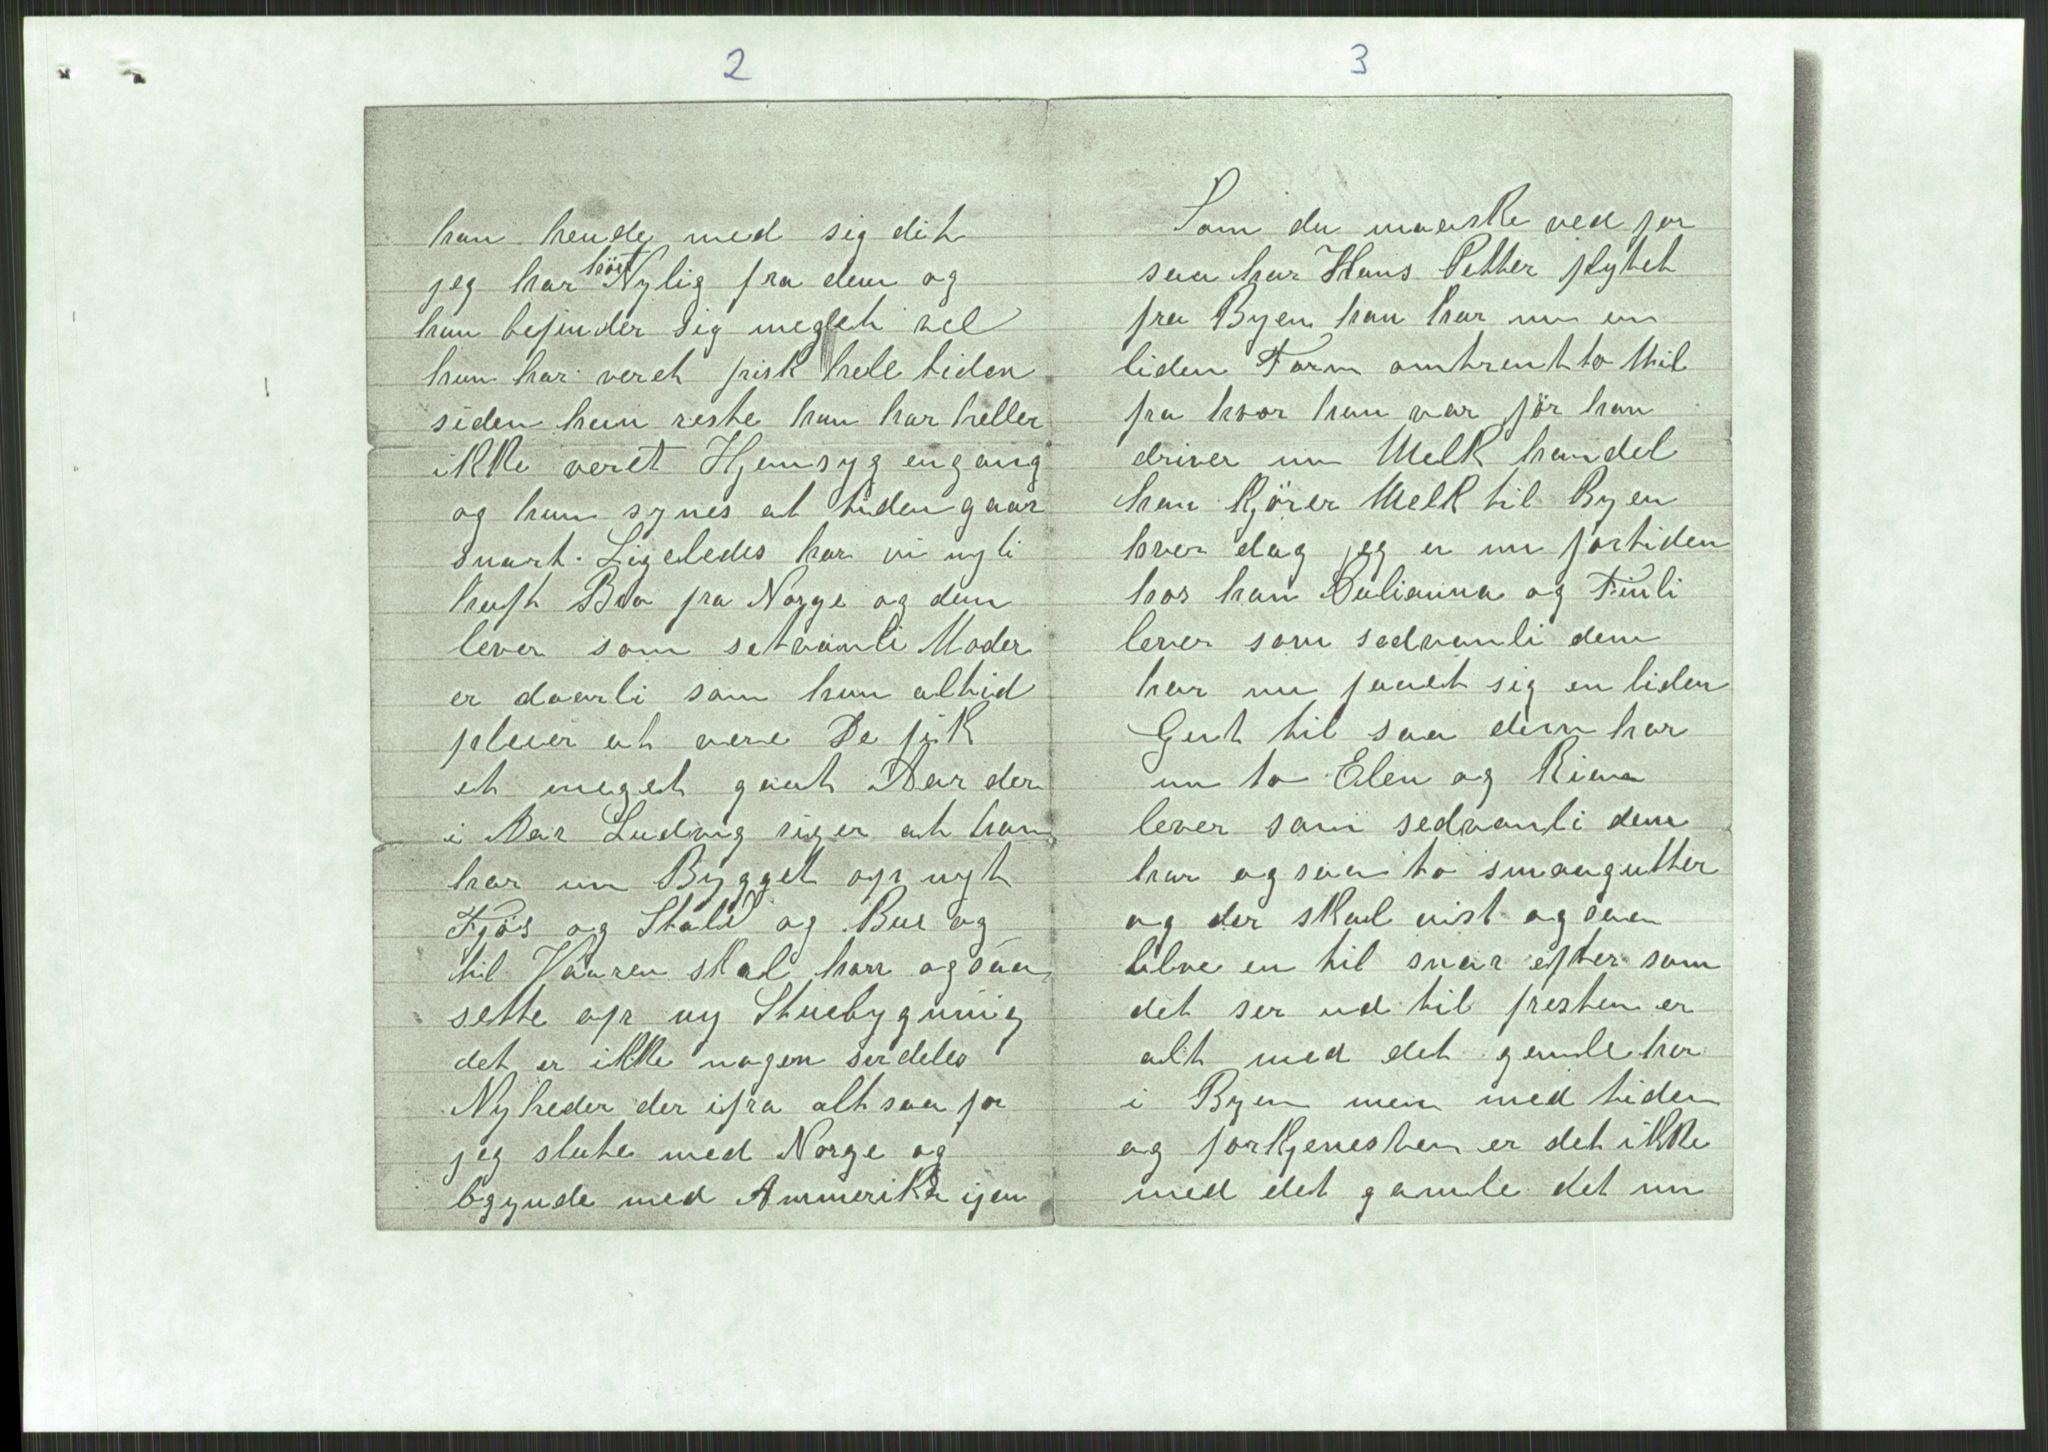 2
han hende med sig dit
jeg har hört Nylig fra dem og
hun befinder sig meget vel
hun har veret frisk hele tiden
siden hun reste hun har heller
ikke veret Hjemsyg engang
og hun synes at tiden gaar
snart. Ligeledes har vi nyli
haft Brev fra Norge og dem
lever som setvanli Moder
er daarli som hun altid
pleier at vere De fik
et meget gaat Aar der
i Aar Ludvig siger at han
har nu Bygget op nyt
Fjös og Stald og Bur og
til Vaaren skal han ogsaa
sette op ny Stuebygning
det er ikke nogen serdeles
Nyheder der ifra altsaa for
jeg slute med Norge og
bgynde med Ammerika igen
3
Som du maaske ved for
saa har Hans Petter flytet
fra Byen han har nu en
liden Farm omtrent to Mil
fra hvor han var för han
driver nu Melk handel
han Kjörer Melk til Byen
hver dag jeg er nu fortiden
hos han Julianna og Fmli
lever som sedvanli dem
har nu faaet sig en liden
Gut til saa dem har
nu to Elen og Rina
lever som sedvanli dem
har ogsaa to smaagutter
og der skal vist ogsaa
blive en til snar efter som
det ser ud til fresten er
alt med det gamle her
i Byen men med tiden
og forkjenesten er det ikke
med det gamle det nu